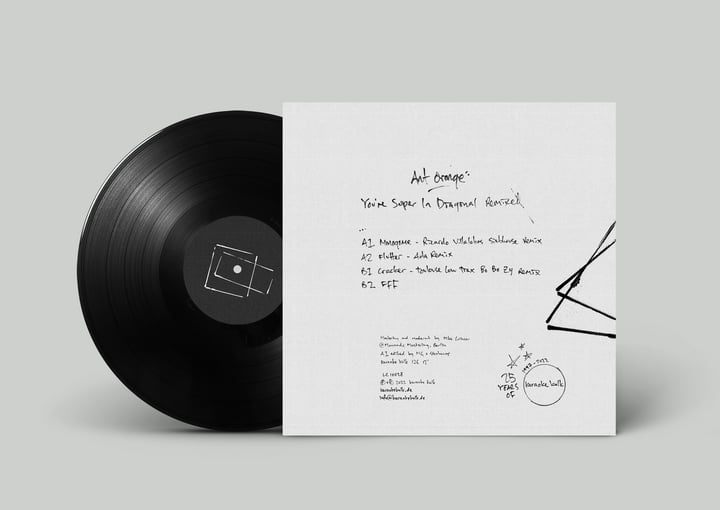 Ant Orange
You're Super In Diagonal Remixed
...
A1 Monogame - Ricardo Villalobos Subhouse Remix
A2 Flutter - Ada Remix
B1 Cracker - Toulouse Low Trax Bo Bo Zy Remix
B2 FFF
Mastering and mastercut by Mike Grinser
@Manmade Mastering, Berlin
A1 edited by
karaoke kalk 126 12"
LC 10028
℗+© 2022 karaoke kalk
karaokekalk.de
info@karaokekalk.de
1997-2022
25
YEARS
OF
karaoke kalk